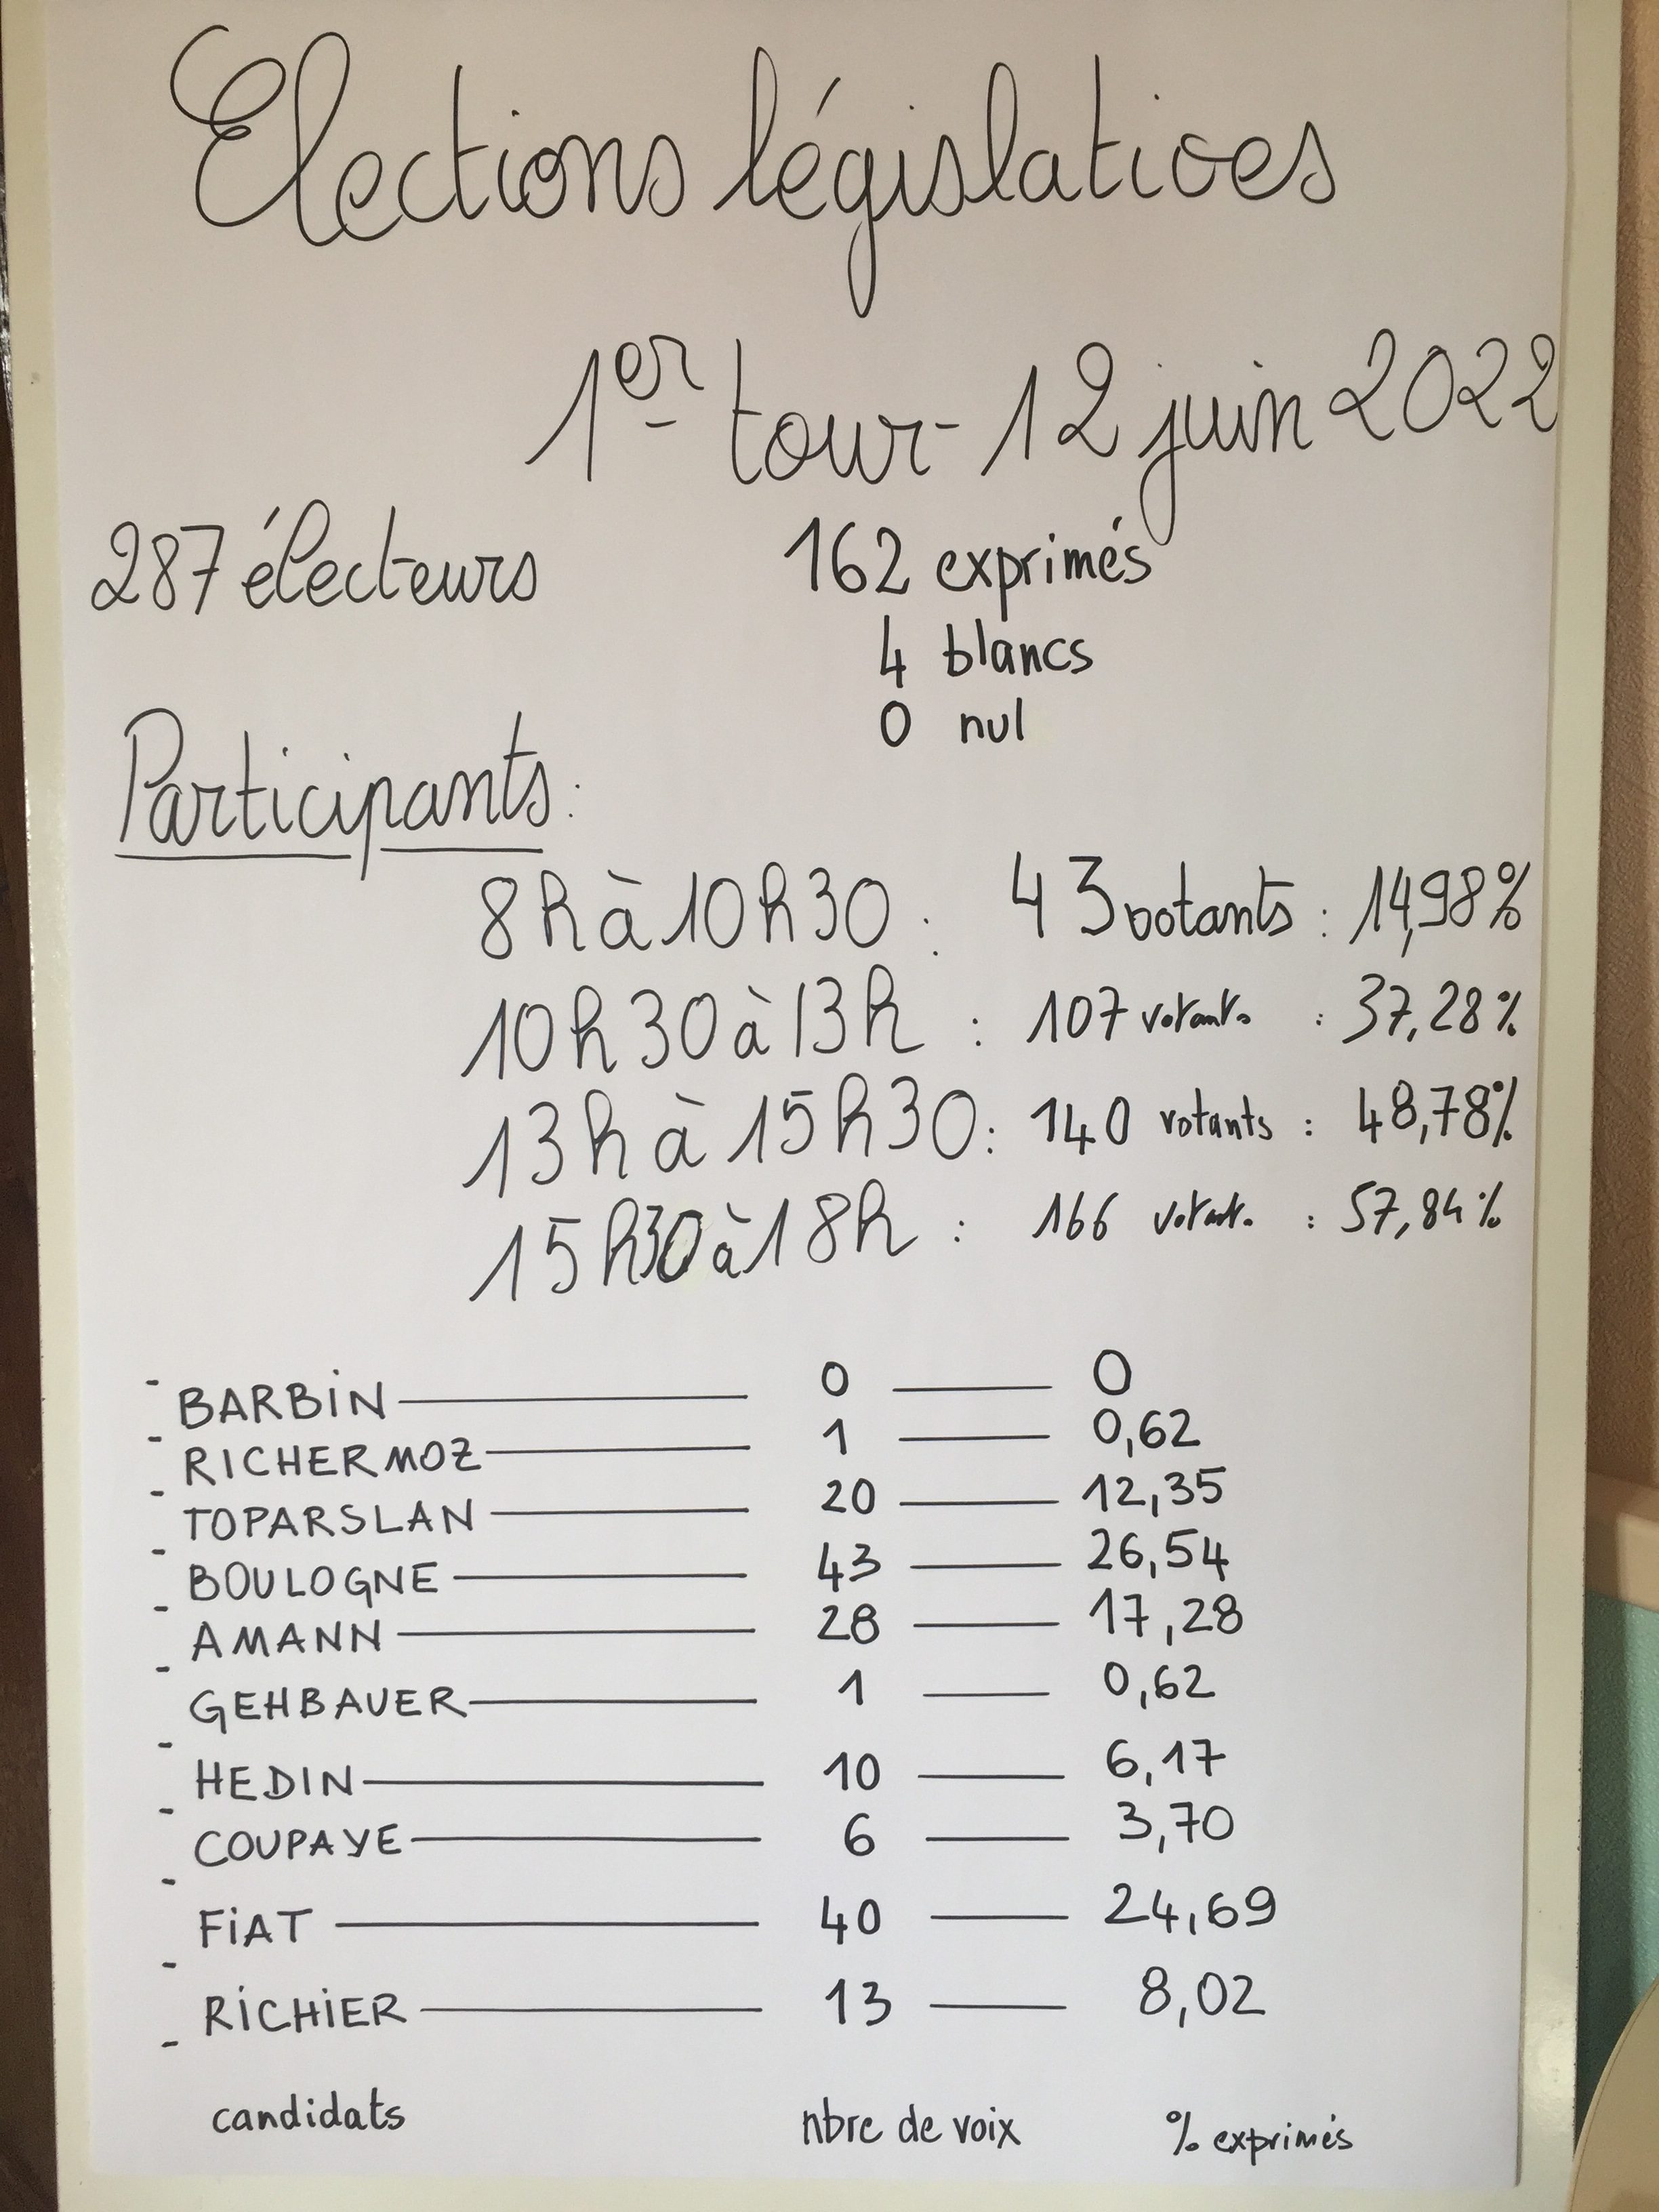 Elections législatives
1er tour - 12 juin 2022
287 électeurs 162 exprimés
4 blancs
0 nul
Participants :
8h à 10h30 : 43 votants : 14,98%
10h30 à 13h : 107 votants : 37,28%
13h à 15h30 : 140 votants : 48,78%
15h30 à 18h : 166 votants : 57,84%
- BARBIN — 0 — 0
- RICHERMOZ — 1 — 0,62
- TOPARSLAN — 20 — 12,35
- BOULOGNE — 43 — 26,54
- AMANN — 28 — 17,28
- GEHBAUER — 1 — 0,62
- HEDIN — 10 — 6,17
- COUPAYE — 6 — 3,70
- FIAT — 40 — 24,69
- RICHIER — 13 — 8,02
-
candidats nbre de voix % exprimés